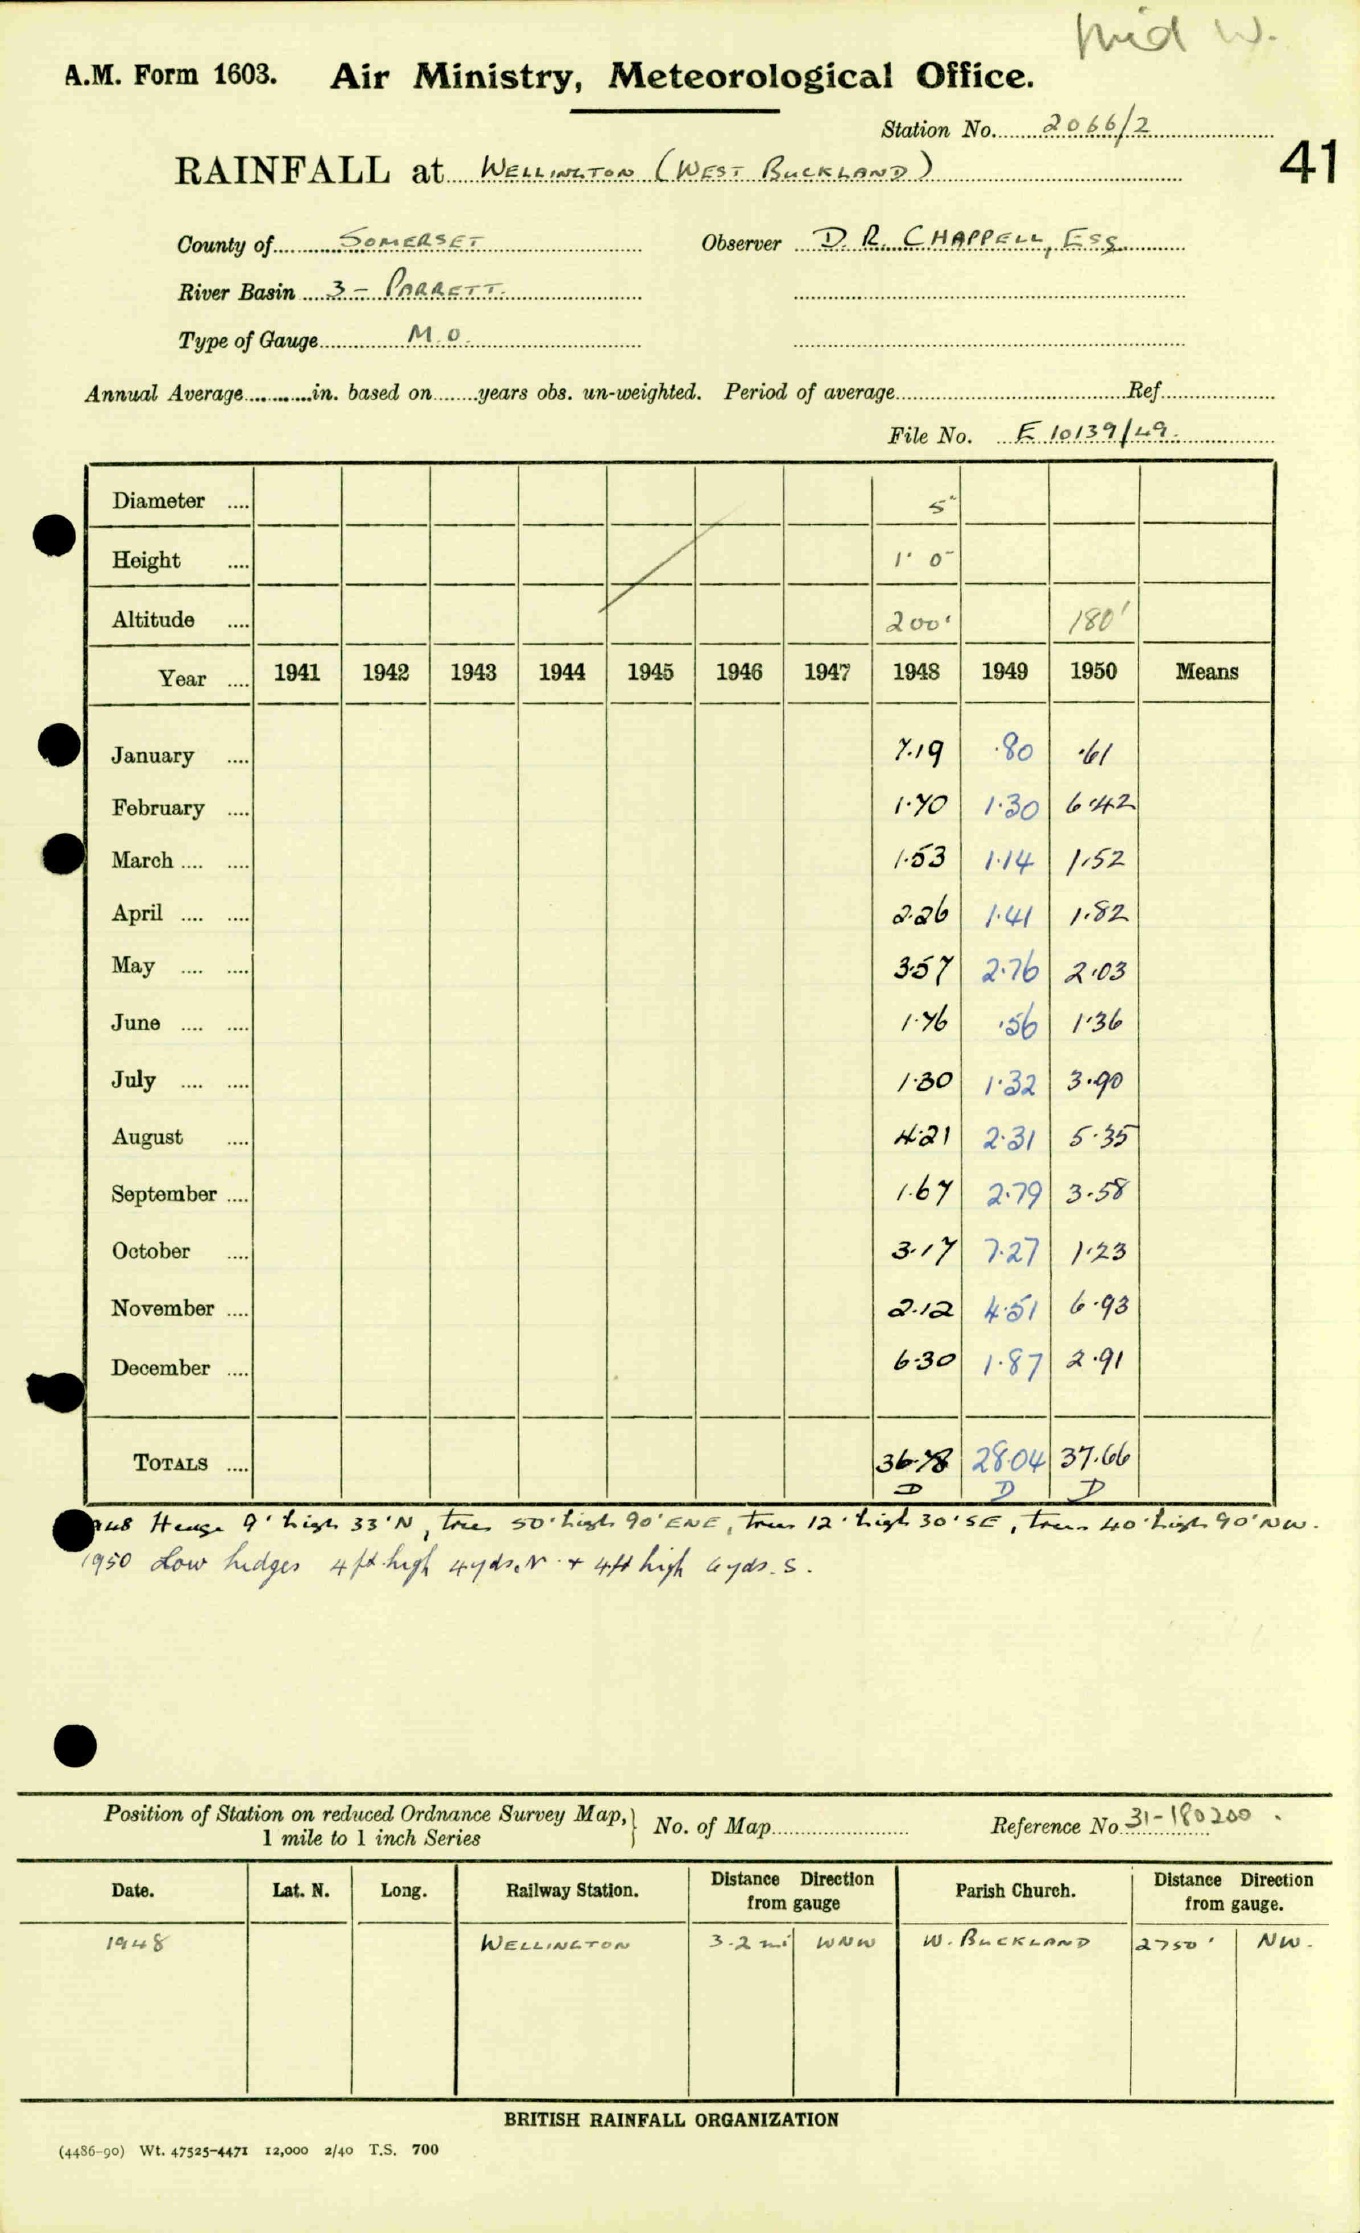 Mid W.
A.M. Form 1603. Air Ministry, Meteorological Office.
Station No. 2066/2
RAINFALL at WELLINGTON (WEST BUCKLAND)
41
County of SOMERSET Observer D. R. CHAPPELL, ESQ
River Basin 3 - PARRETT.
Type of Gauge M.O.
Annual Average in. based on years obs. un-weighted. Period of average Ref
File No. E 10139/49.
Diameter 5"
Height 1' 0"
Altitude 200' 180'
Year 1941 1942 1943 1944 1945 1946 1947 1948 1949 1950 Means
January 7.19 .80 .61
February 1.70 1.30 6.42
March 1.53 1.14 1.52
April 2.26 1.41 1.82
May 3.57 2.76 2.03
June 1.76 .56 1.36
July 1.30 1.32 3.90
August 4.21 2.31 5.35
September 1.67 2.79 3.58
October 3.17 7.27 1.23
November 2.12 4.51 6.93
December 6.30 1.87 2.91
TOTALS 36.78 28.04 37.66
D D D
1948 Hedge 9' high 33' N, trees 50' high 90' ENE, trees 12' high 30' SE, trees 40' high 90' NW.
1950 Low hedges 4 ft high 4 yds. N. + 4ft high 6 yds. S.
Position of Station on reduced Ordnance Survey Map, 1 mile to 1 inch Series No. of Map Reference No 31-180200.
Date. Lat. N. Long. Railway Station. Distance Direction from gauge Parish Church. Distance Direction from gauge.
1948 WELLINGTON 3.2 mi WNW W. BUCKLAND 2750' NW.
BRITISH RAINFALL ORGANIZATION
(4486-90) Wt. 47525-4471 12,000 2/40 T.S. 700